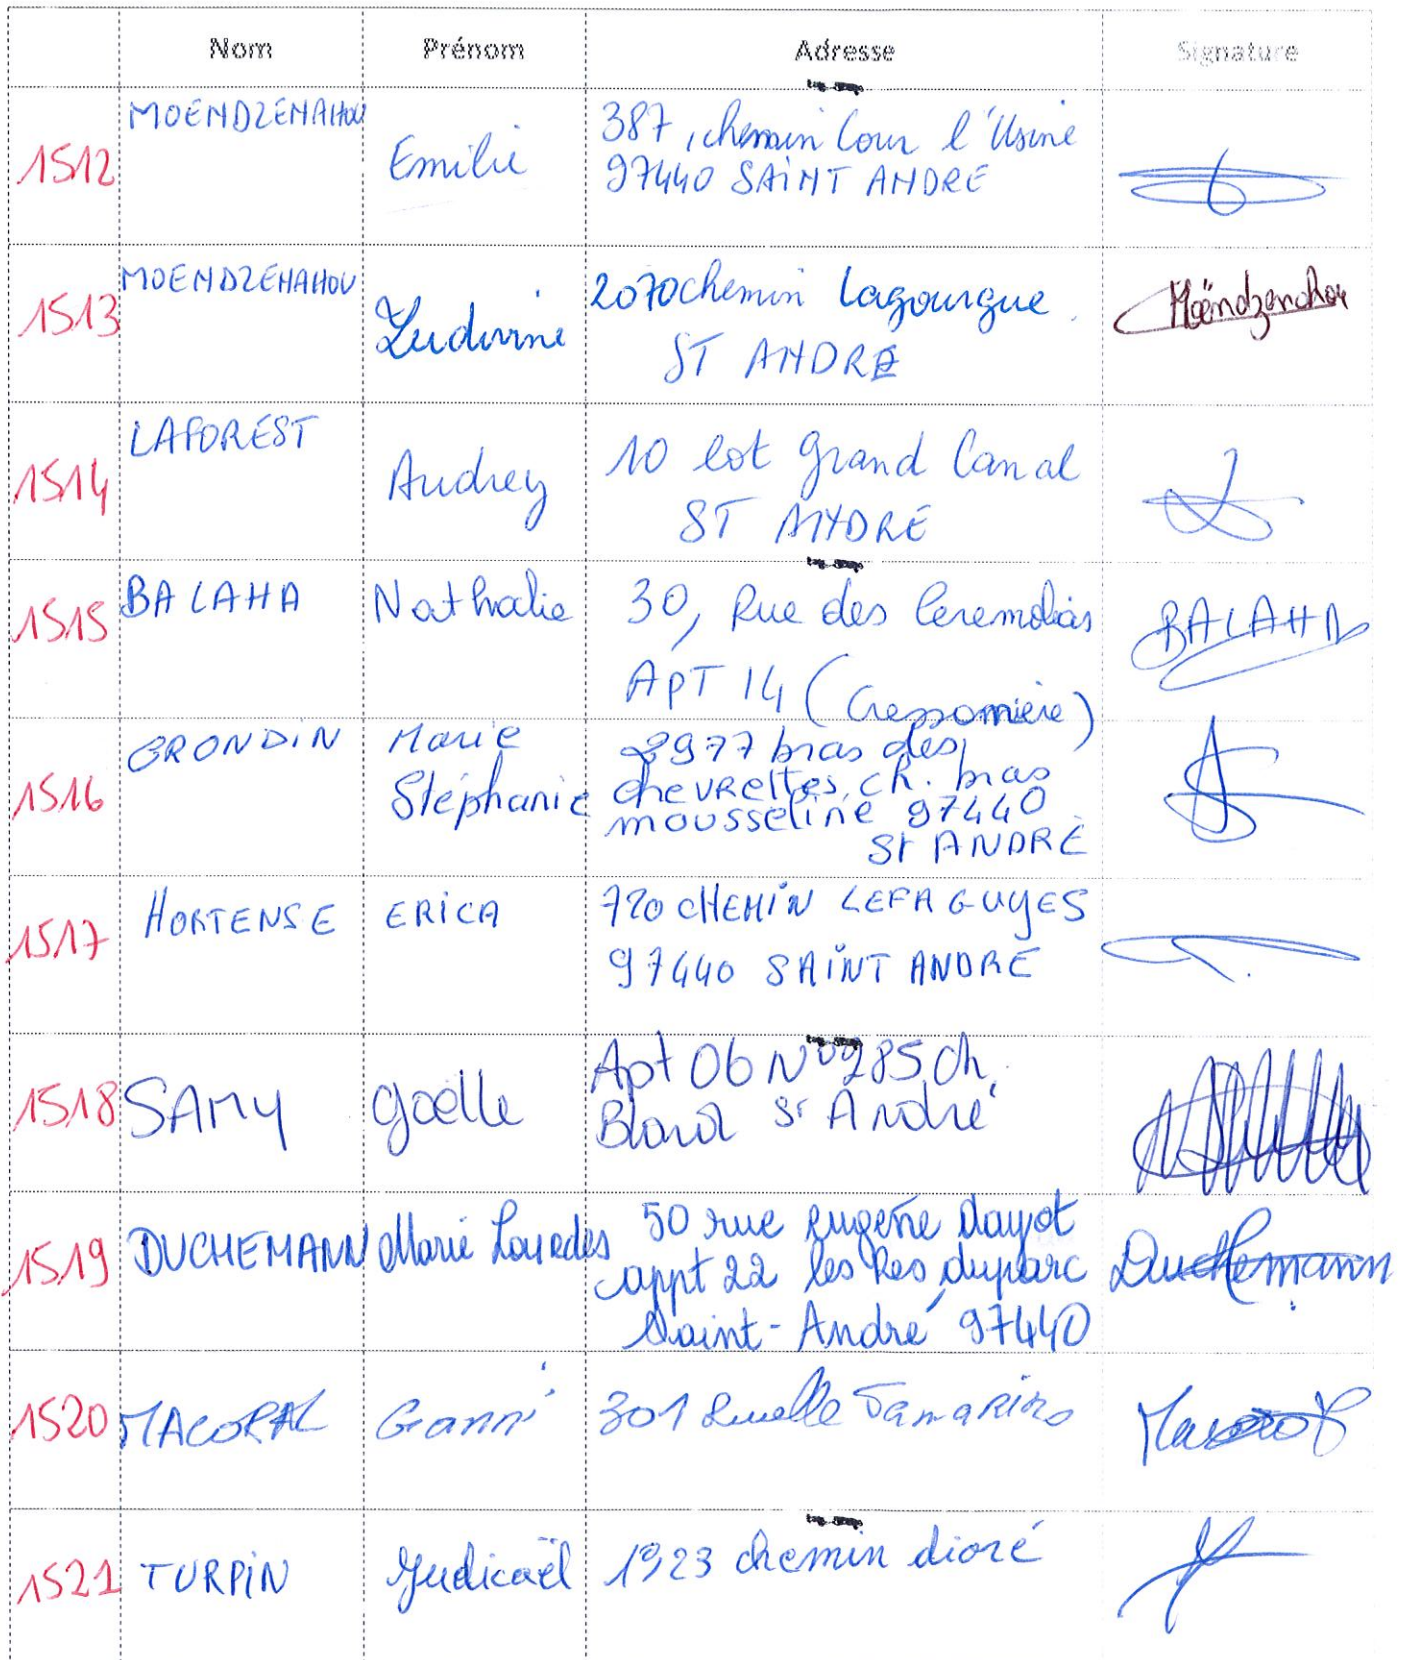 Nom Prénom Adresse Signature
1512 MOENDZENAHOU Emilie 387, chemin Cour l'Usine
97440 SAINT ANDRE
1513 MOENDZENAHOU Ludivine 2070 chemin Lagourgue
ST ANDRE
Moëndzenahou
1514 LAFOREST Audrey 10 lot Grand Canal
ST ANDRE
1515 BALAHA Nathalie 30, Rue des
APT 14 (Cressonnière)
BALAHA
1516 GRONDIN Marie
Stéphanie
2977 bras des
chevrettes, ch. bras
mousseline 97440
St ANDRE
1517 HORTENSE ERICA 720 CHEMIN LEFAGUYES
97440 SAINT ANDRE
1518 SAMY Gaëlle Apt 06 N° 285 ch.
St André
1519 DUCHEMANN Marie Lourdes 50 rue eugene dayot
appt 22 les Res duparc
Saint-André 97440
Duchemann
1520 MACORAL 301 Ruelle Tamarins
1521 TURPIN Judicaël 1923 chemin dioré